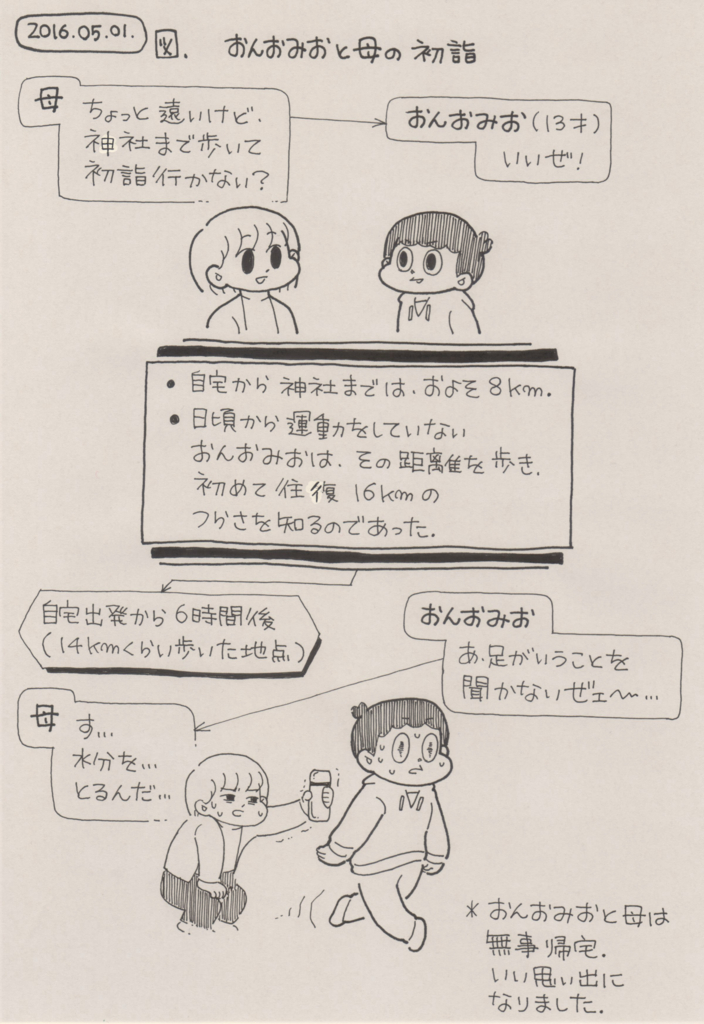 2016.05.01.
図. おんおみおと母の初詣
母
ちょっと遠いけど、
神社まで歩いて
初詣行かない？
おんおみお(13才)
いいぜ！
• 自宅から神社までは、およそ8km.
• 日頃から運動をしていない
おんおみおは、その距離を歩き、
初めて往復16kmの
つらさを知るのであった.
自宅出発から6時間後
(14kmくらい歩いた地点)
おんおみお
あ、足がいうことを
聞かないぜェ〜…
母
す…
水分を…
とるんだ…
* おんおみおと母は
無事帰宅.
いい思い出に
なりました.